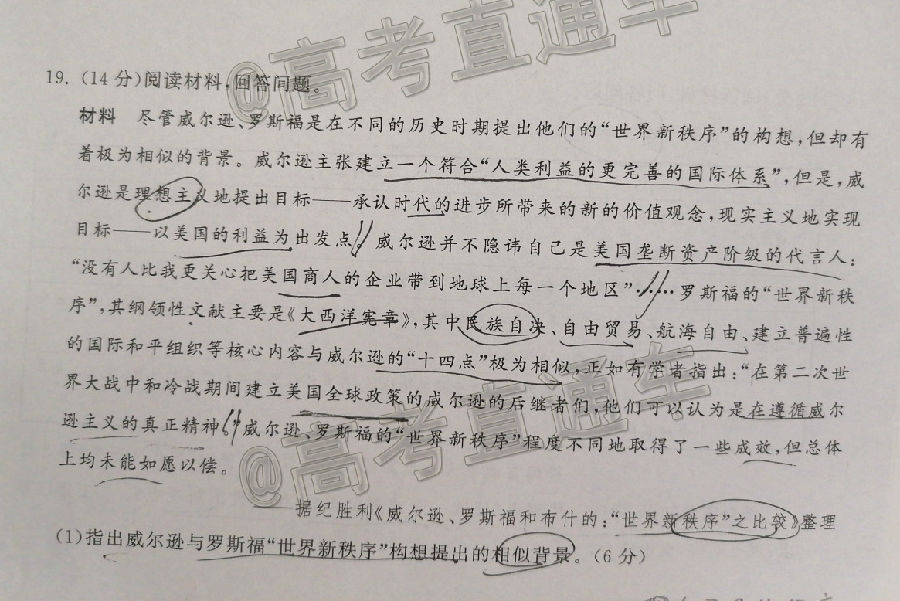 @高考直通车
19. (14分)阅读材料,回答问题。
材料 尽管威尔逊、罗斯福是在不同的历史时期提出他们的“世界新秩序”的构想,但却有
着极为相似的背景。威尔逊主张建立一个符合“人类利益的更完善的国际体系”,但是,威
尔逊是理想主义地提出目标——承认时代的进步所带来的新的价值观念,现实主义地实现
目标——以美国的利益为出发点。威尔逊并不隐讳自己是美国垄断资产阶级的代言人:
“没有人比我更关心把美国商人的企业带到地球上每一个地区”……罗斯福的“世界新秩
序”,其纲领性文献主要是《大西洋宪章》,其中民族自决、自由贸易、航海自由、建立普遍性
的国际和平组织等核心内容与威尔逊的“十四点”极为相似,正如有学者指出:“在第二次世
界大战中和冷战期间建立美国全球政策的威尔逊的后继者们,他们可以认为是在遵循威尔
逊主义的真正精神。”威尔逊、罗斯福的“世界新秩序”程度不同地取得了一些成效,但总体
上均未能如愿以偿。
@高考直通车
据纪胜利《威尔逊、罗斯福和布什的:“世界新秩序”之比较》整理
(1)指出威尔逊与罗斯福“世界新秩序”构想提出的相似背景。(6分)